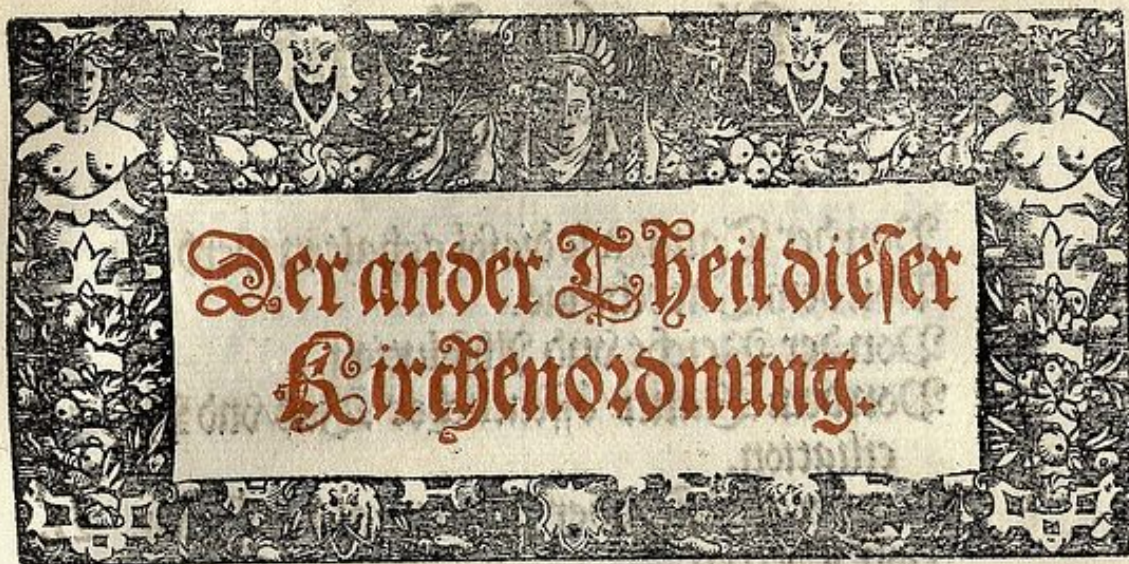 Der ander Theil dieſer
Kirchenordnung.